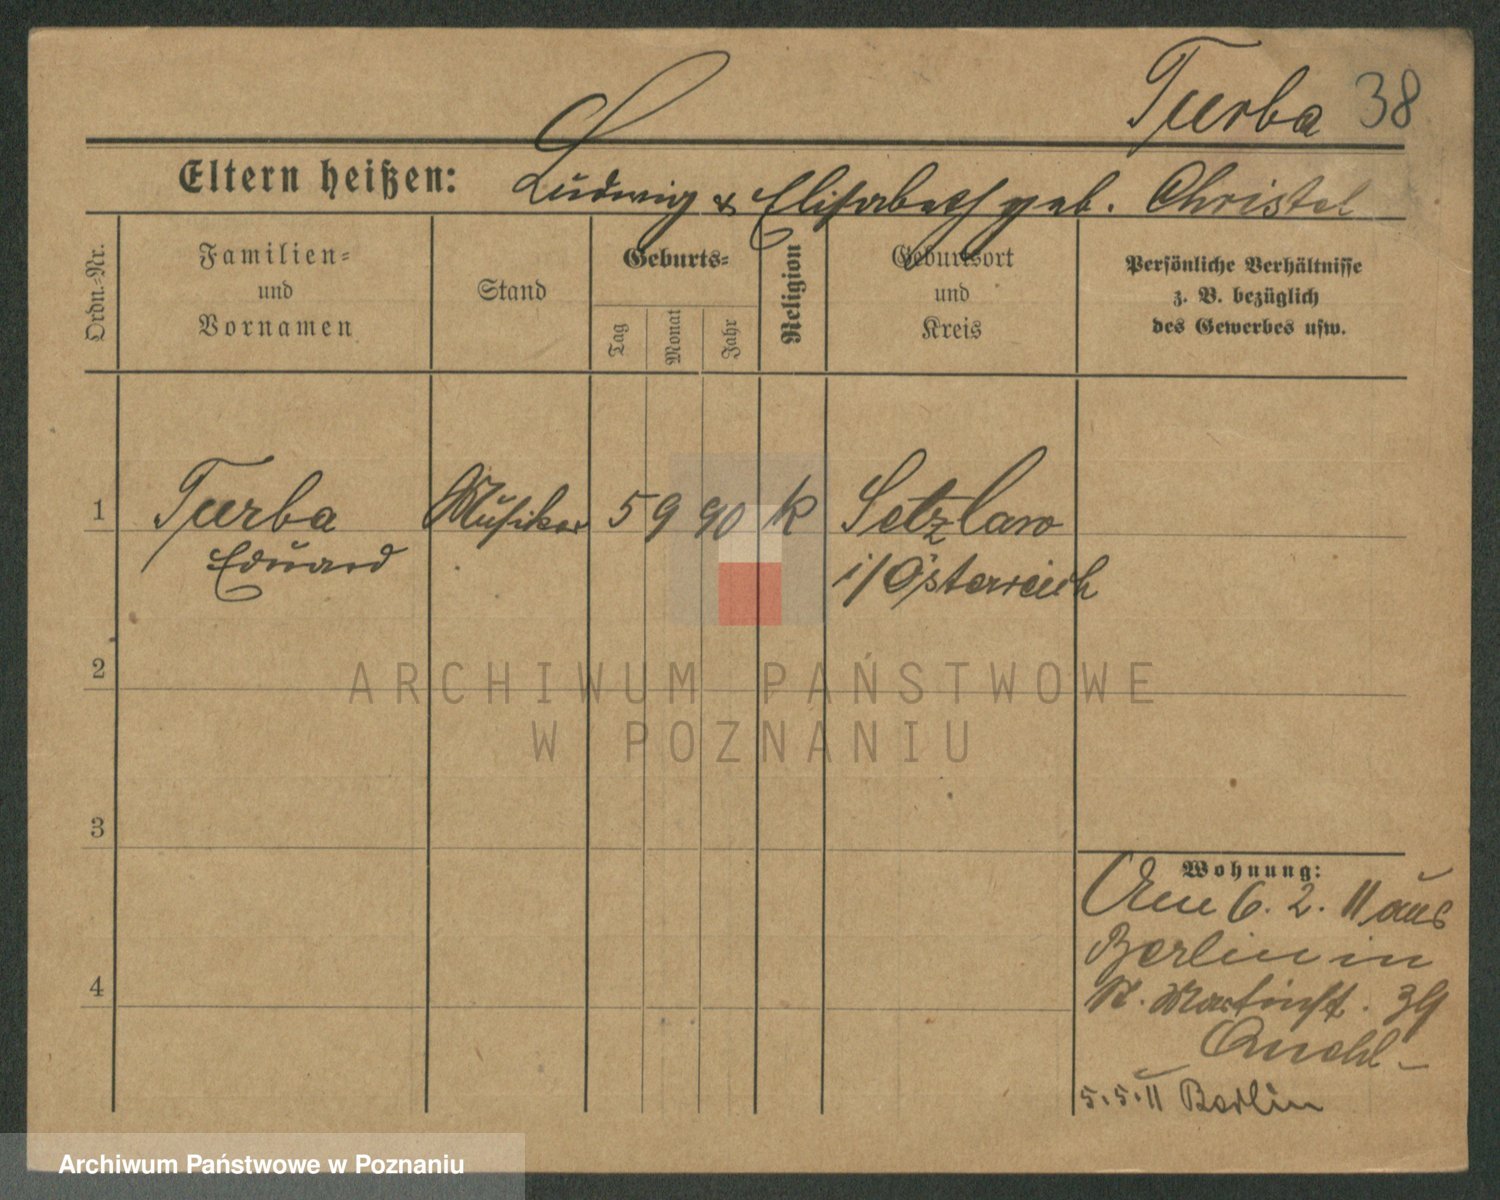 Turba 38
Eltern heißen: Ludwig & Elisabeth geb. Christel
Ordn.-Nr.
Familien-
und
Vornamen
Stand
Geburts-
Tag
Monat
Jahr
Religion
Geburtsort
und
Kreis
Persönliche Verhältnisse
z. B. bezüglich
des Gewerbes usw.
1 Turba Musiker 5 9 90 k Setzlaw
Eduard i/Österreich
2
ARCHIWUM PAŃSTWOWE
W POZNANIU
3
Wohnung:
Am 6. 2. 11 aus
Berlin in
St. Martinst. 39
4
5.5.11 Berlin
Archiwum Państwowe w Poznaniu